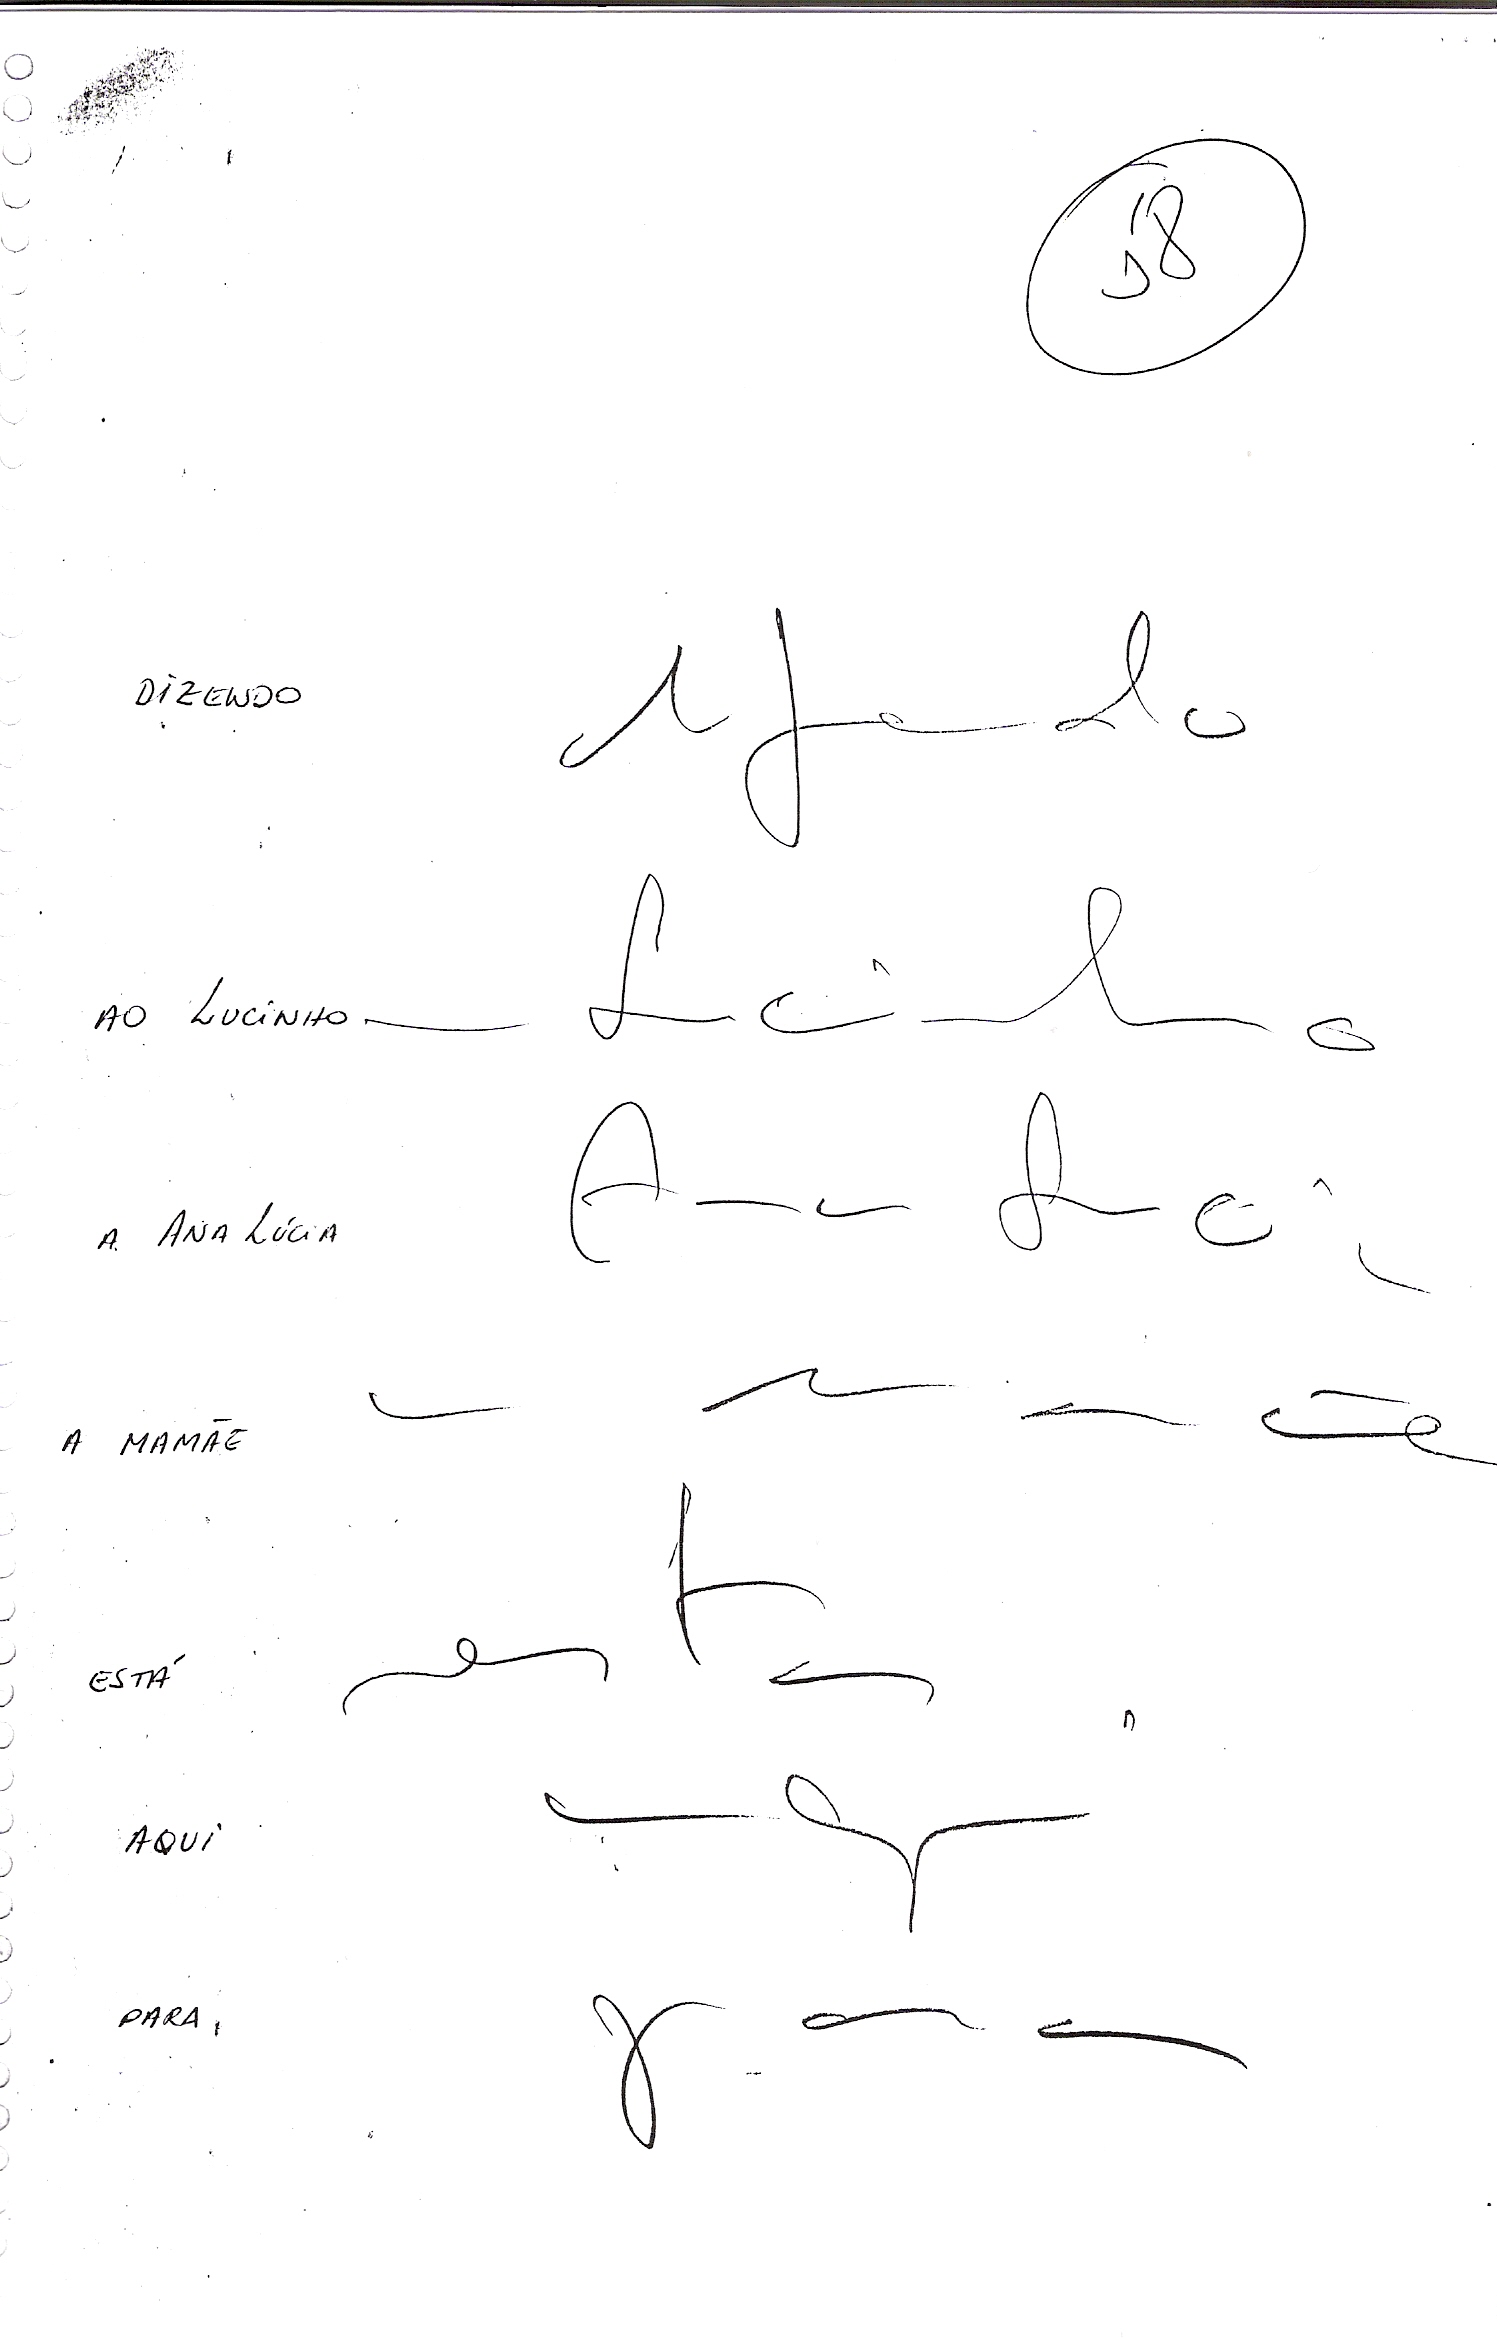 58
DIZENDO dizendo
AO LUCINHO Lucinho
A ANA LÚCIA Ana Luci
A MAMÃE a mamãe
ESTÁ esta
AQUI aqui
PARA, para